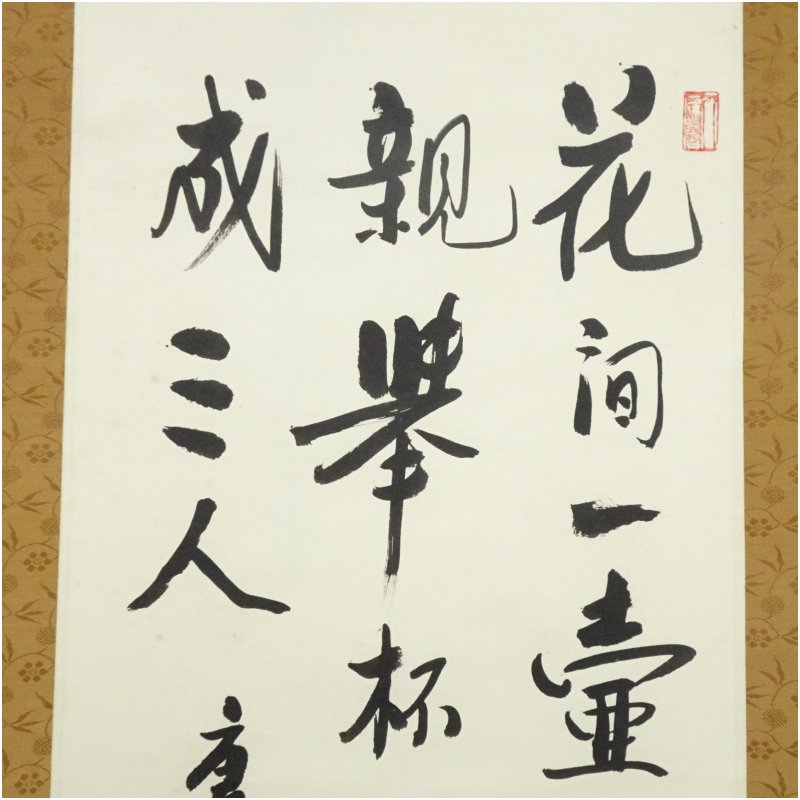 花間一壺
親舉杯
成三人
唐